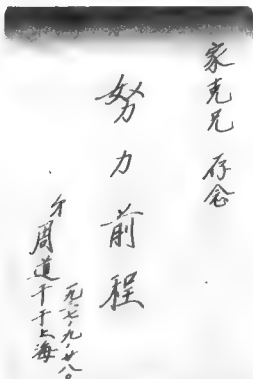 家克兄 存念
努力前程
弟周道千于上海
一九三七·九·廿八。